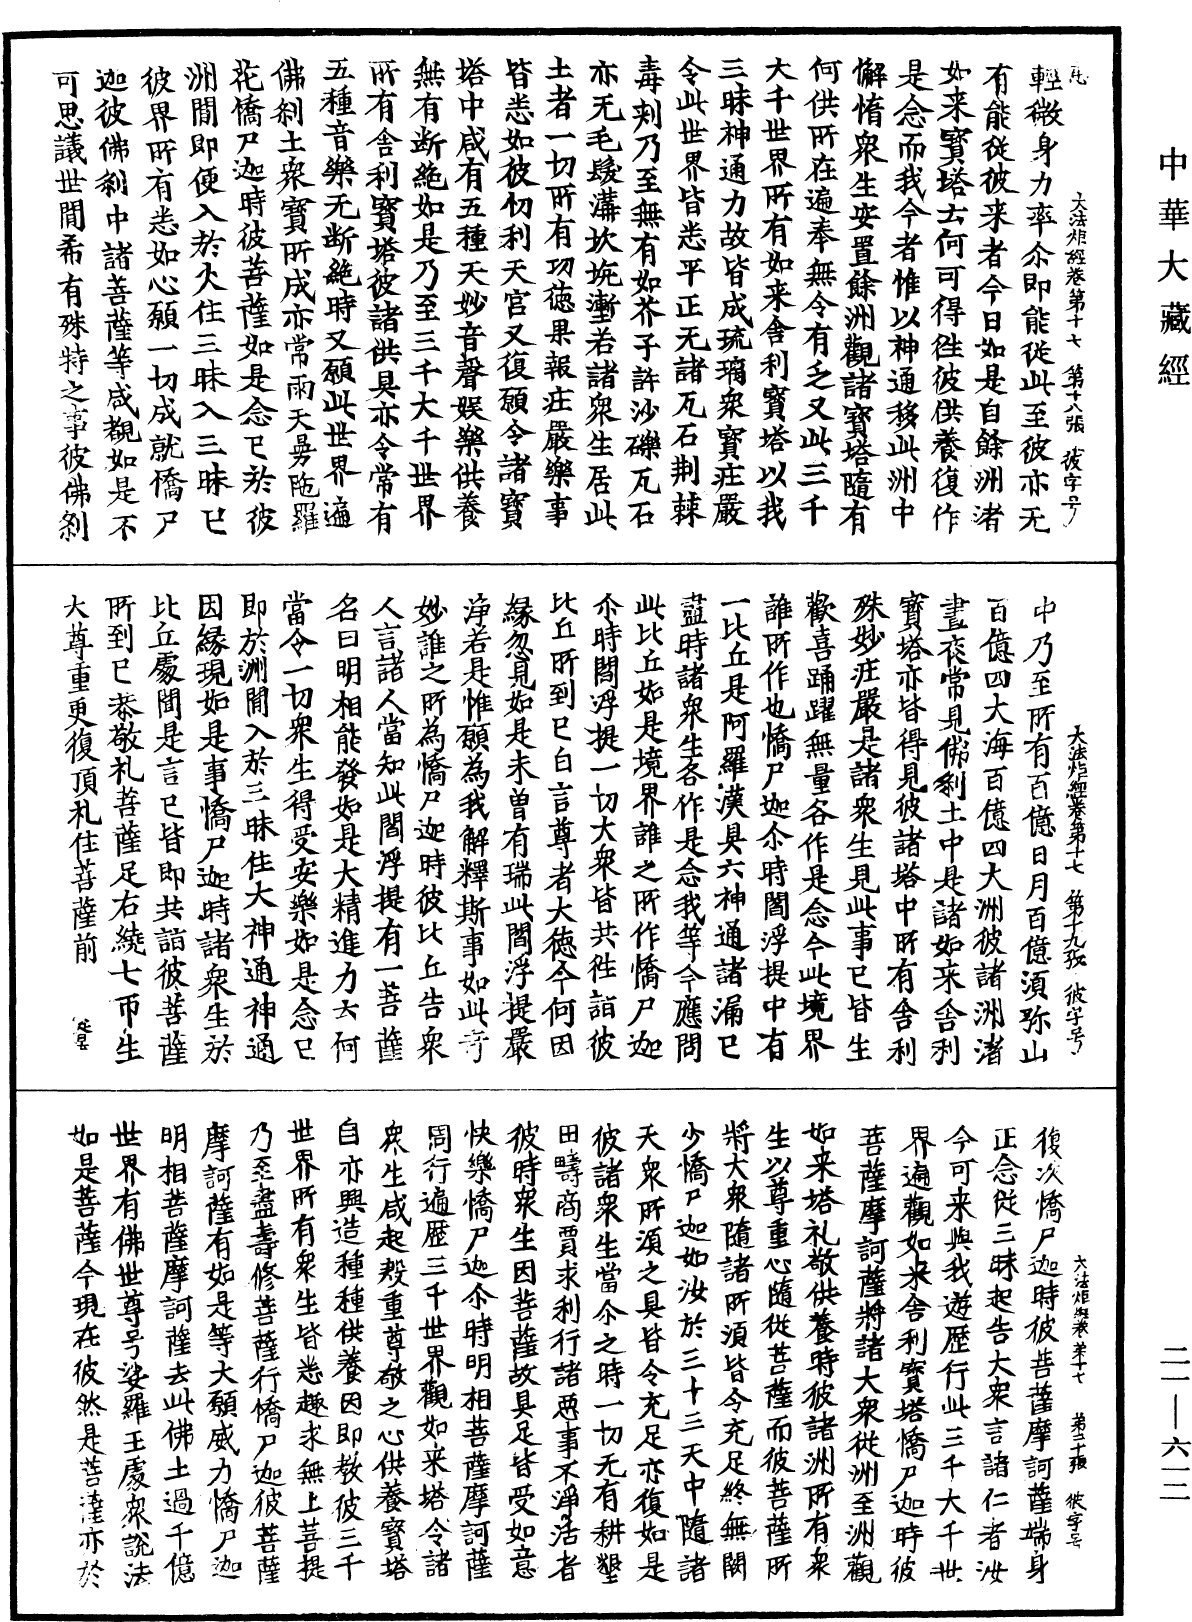 中華大藏經
二一—六一三
大法炬經卷第十七 第十八張 彼字号
輕微身力率尒即能從此至彼亦无
有能從彼来者今日如是自餘洲渚
如来寳塔去何可得徃彼供養復作
是念而我今者惟以神通移此洲中
懈惰衆生安置餘洲觀諸寳塔隨有
何供所在遍奉無令有乏又此三千
大千世界所有如来舎利寳塔以我
三昧神通力故皆成琉璃衆寳莊嚴
令此世界皆悉平正无諸瓦石荆棘
毒刺乃至無有如芥子許沙礫瓦石
亦无毛髮溝坎坑壍若諸衆生居此
土者一切所有功徳果報莊嚴樂事
皆悉如彼忉利天宫又復願令諸寳
塔中咸有五種天妙音聲娱樂供養
無有断絶如是乃至三千大千世界
所有舎利寳塔彼諸供具亦令常有
五種音樂无断絶時又願此世界遍
佛刹土衆寳所成亦常雨天曼陁羅
花憍尸迦時彼菩薩如是念已於彼
洲間即便入於火住三昧入三昧已
彼界所有悉如心願一切成就憍尸
迦彼佛刹中諸菩薩等咸覩如是不
可思議世間希有殊特之事彼佛刹
大法炬經卷第十七 第十九張 彼字号
中乃至所有百億日月百億須弥山
百億四大海百億四大洲彼諸洲渚
晝夜常見佛刹土中是諸如来舎利
寳塔亦皆得見彼諸塔中所有舎利
殊妙莊嚴是諸衆生見此事已皆生
歡喜踊躍無量各作是念今此境界
誰所作也憍尸迦尒時閻浮提中有
一比丘是阿羅漢具六神通諸漏已
盡時諸衆生各作是念我等今應問
此比丘如是境界誰之所作憍尸迦
尒時閻浮提一切大衆皆共徃詣彼
比丘所到已白言尊者大徳今何因
縁忽見如是未曾有瑞此閻浮提嚴
淨若是惟願為我解釋斯事如此奇
妙誰之所為憍尸迦時彼比丘告衆
人言諸人當知此閻浮提有一菩薩
名曰明相能發如是大精進力去何
當令一切衆生得受安樂如是念已
即於洲間入於三昧住大神通神通
因縁現如是事憍尸迦時諸衆生於
比丘處聞是言已皆即共詣彼菩薩
所到已恭敬礼菩薩足右繞七帀生
大尊重更復頂礼住菩薩前
大法炬經卷第十七 第二十張 彼字号
復次憍尸迦時彼菩薩摩訶薩端身
正念從三昧起告大衆言諸仁者汝
今可来與我遊歴行此三千大千世
界遍觀如来舎利寳塔憍尸迦時彼
菩薩摩訶薩將諸大衆從洲至洲觀
如来塔礼敬供養時彼諸洲所有衆
生以尊重心隨從菩薩而彼菩薩所
將大衆隨諸所須皆令充足終無闕
少憍尸迦如汝於三十三天中隨諸
天衆所須之具皆令充足亦復如是
彼諸衆生當尒之時一切无有耕墾
田疇商賈求利行諸惡事不淨活者
彼時衆生因菩薩故具足皆受如意
快樂憍尸迦尒時明相菩薩摩訶薩
周行遍歴三千世界觀如来塔令諸
衆生咸起殷重尊敬之心供養寳塔
自亦興造種種供養因即教彼三千
世界所有衆生皆悉趣求無上菩提
乃至盡壽修菩薩行憍尸迦彼菩薩
摩訶薩有如是等大願威力憍尸迦
明相菩薩摩訶薩去此佛土過千億
世界有佛世尊号娑羅王處衆說法
如是菩薩今現在彼然是菩薩亦於